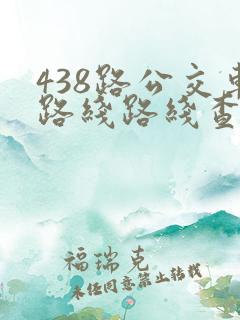 438路公交车
路线路线查
福瑞克
未经同意禁止转载